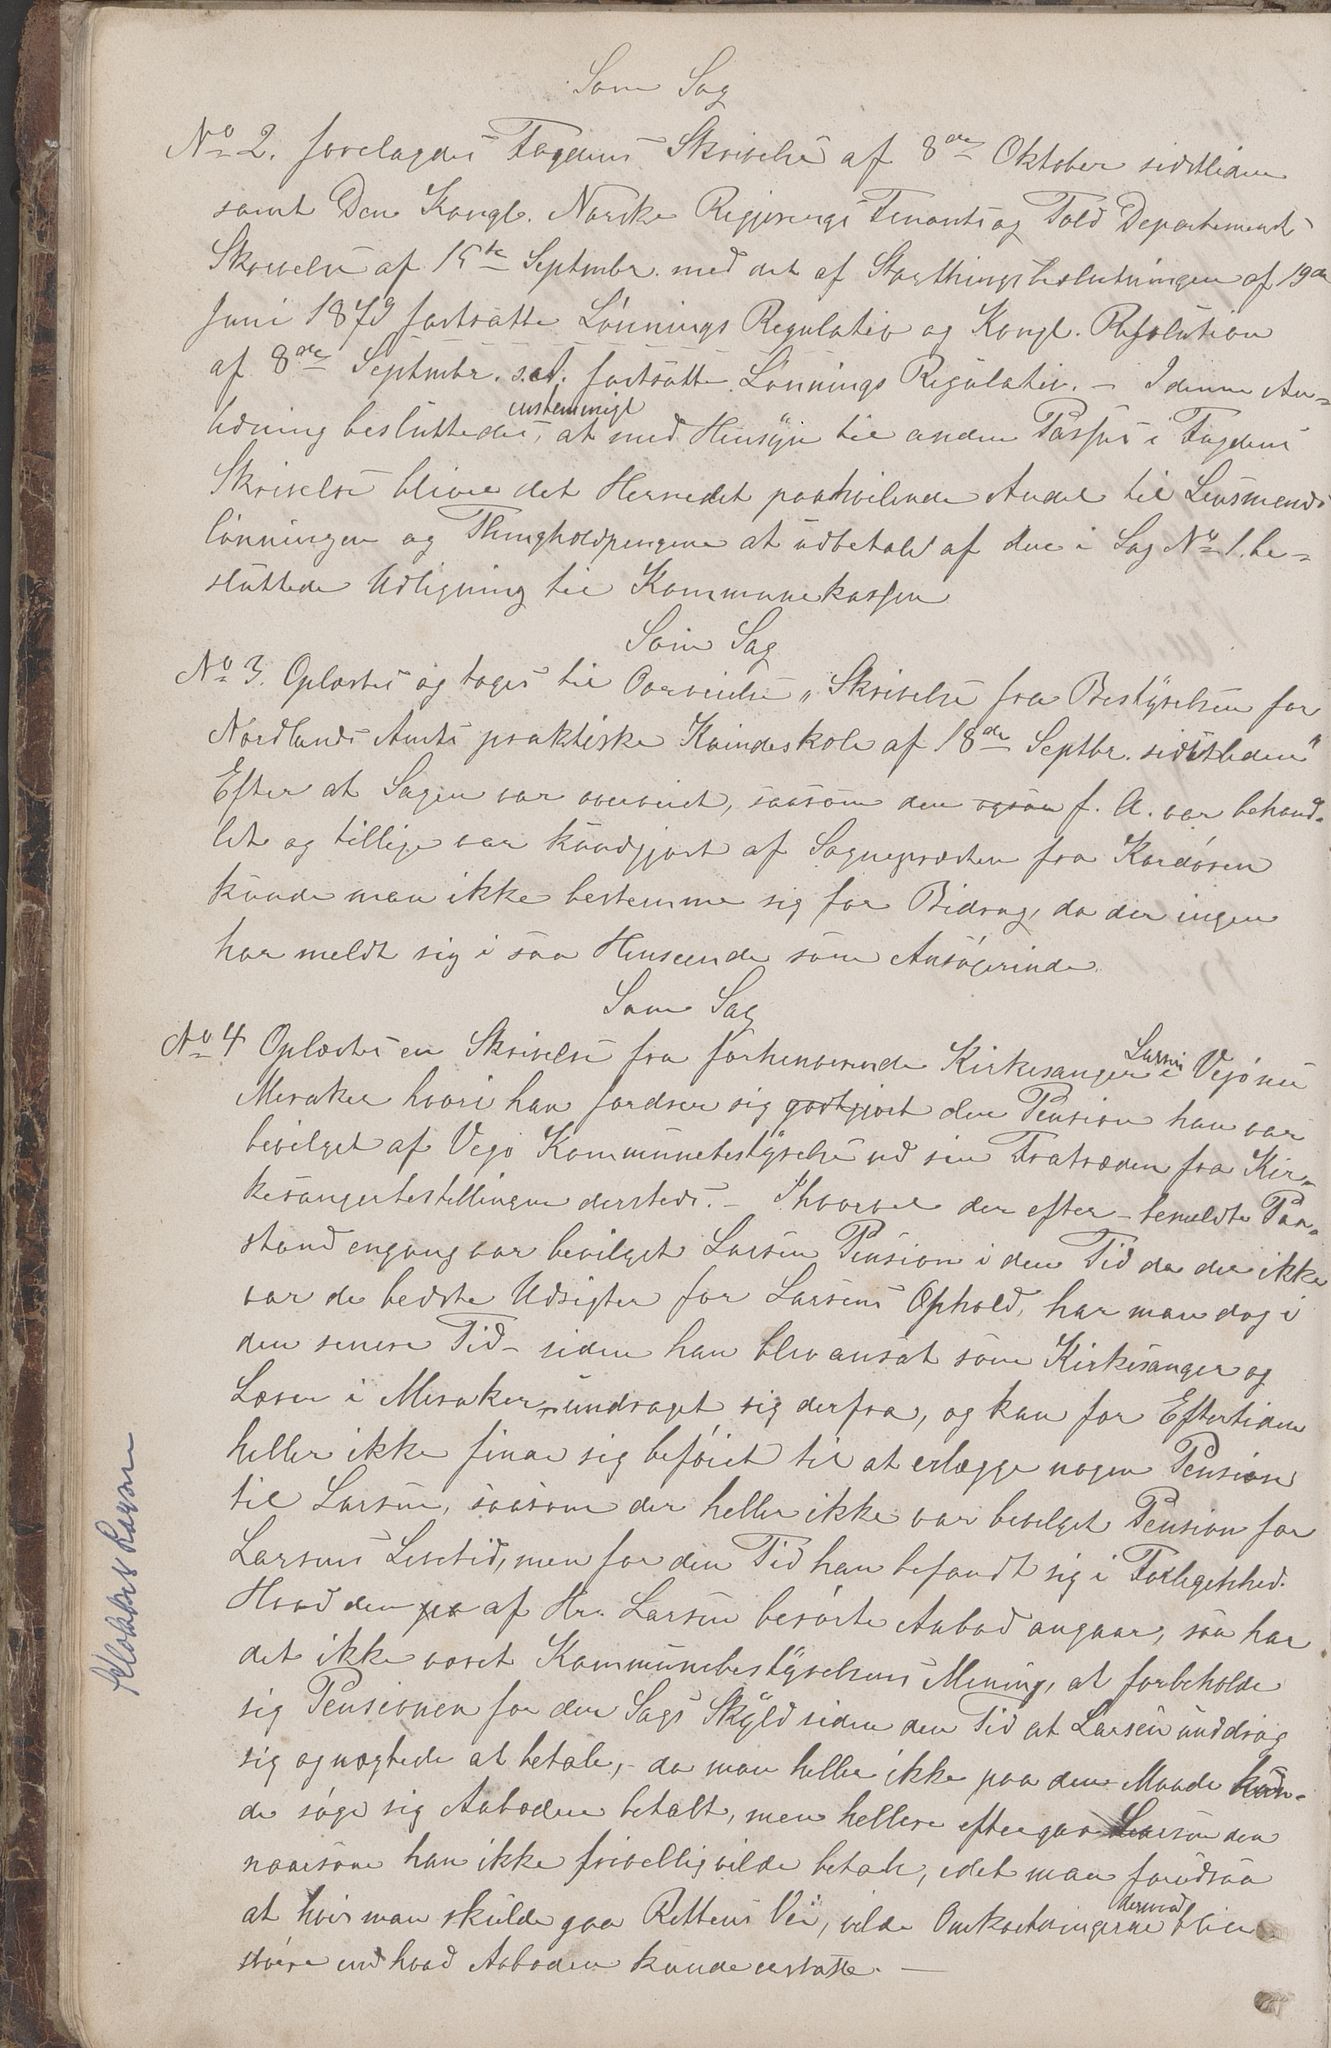 Som Sag
No 2. forelagdes Fogdens Skrivelse af 8de Oktober sidstleden
samt Den Kongl. Norske Regjerings Finants og Told Departements
Skrivelse af 15te Septmbr. med det af Storthingsbeslutningen af 19de
Juni 1879 fortsatte Lønnings Regulativ og Kongl. Resolution
af 8de Septmbr. s.A. fortsatte Lønnings Regulativ. – I denne An-
ledning besluttedes enstemmigt, at med Hensyn til anden Passus i Fogdens
Skrivelse bliver det Herredet paahvilende Andel til Lensmands
lønningen og Thingholdpengene at udbetale af den i Sag No 1. be-
sluttede Udligning til Kommunekassen
Som Sag
No 3. Oplæstes og toges til Overveielse „Skrivelse fra Bestyrelsen for
Nordlands Amts praktiske Kvindeskole af 18de Septbr. sidstleden"
Efter at Sagen var overveiet, saasom den ogsaa f. A. var behand-
let og tillige var kundgjort af Sognepræsten fra Kordøren
kunde man ikke bestemme sig for Bidrag, da der ingen
har meldt sig i saa Henseende som Ansøgerinde.
Som Sag
No 4 Oplæstes en Skrivelse fra forhenværende Kirkesanger Larsen i Vejø nu
Meraker hvori han fordrer sig godtgjort den Pension han var
bevilget af Vejø Kommunebestyrelse ved sin Fratræden fra Kir-
kesangerbestillingen dersteds. – Ihvorvel der efter bemeldte Paa-
stand engang var bevilget Larsen Pension i den Tid da der ikke
var de bedste Udsigter for Larsens Ophold, har man dog i
den senere Tid – siden han blev ansat som Kirkesanger og
Lærer i Meraker, – undraget sig derfra, og kan for Eftertiden
heller ikke finde sig beføiet til at erlægge nogen Pension
til Larsen, saasom der heller ikke var bevilget Pension for
Larsens Livstid, men for den Tid han befandt sig i Forlegenhed.
Hvad den pa af Hr. Larsen berørte Aabod angaar, saa har
det ikke været Kommunebestyrelsens Mening, at forbeholde
sig Pensionen for den Sags Skyld siden den Tid at Larsen unddrog
sig og nægtede at betale, – da man heller ikke paa den Maade kun-
de søge sig Aaboden betalt, men hellere eftergav Larsen den
naarsom han ikke frivillig vilde betale, idet man forudsaa
at hvis man skulde gaa Rettens Vei, vilde Omkostningerne dermed blive
større end hvad Aaboden kunde erstatte. –
Klokker Larsen